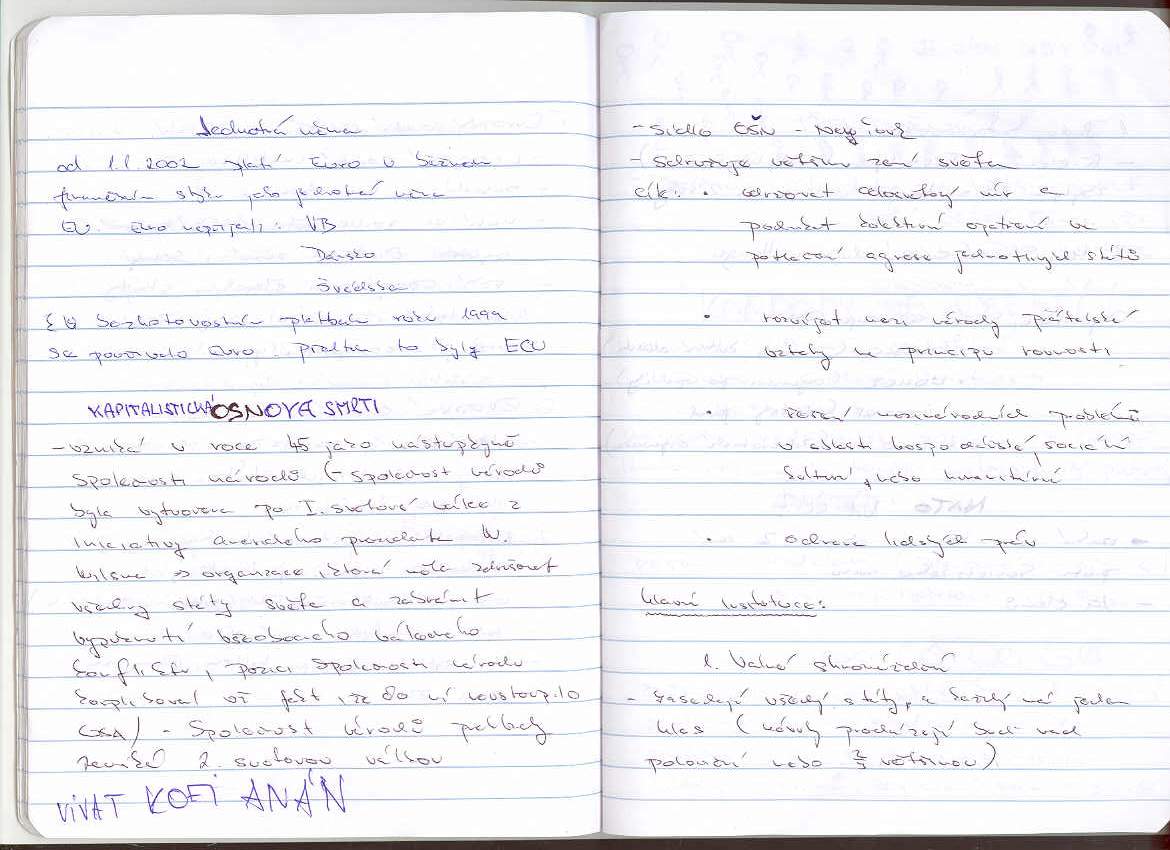 Jednotná měna
od 1.1.2002 platí Euro v běžném
finančním styku jako jednotná měna
EU. Euro nepřijali: VB
Dánsko
Švédsko
V bezhotovostním platbám roku 1999
se používalo Euro. Předtím to byly ECU
KAPITALISTICKÁ OSNOVA SMRTI
- vzniká v roce 45 jako nástupkyně
Společnosti národů (- Společnost národů
byla vytvořena po I. světové válce z
iniciativy amerického prezidenta W.
Wilsna => organizace, která měla sdružovat
všechny státy světa a zabránit
vypuknutí válkového
konfliktu, pozici Společnosti národů
komplikoval už fakt, že do ní nevstoupilo
USA) - Společnost národů
zaniká 2. světovou válkou
VIVAT KOFI ANÁN
- Sídlo OSN - New York
- Sdružuje většinu zemí světa
cíle: • udržovat celosvětový mír a
podnikat kolektivní opatření na
potlačení agrese jednotlivých států
• rozvíjet mezi národy přátelské
vztahy na principu rovnosti
• řešení mezinárodních problémů
v oblasti hospodářské, sociální
kulturní, nebo humanitární
• ochrana lidských práv
hlavní instituce:
1. Valné shromáždění
- zasedají všechny státy, a každý má jeden
hlas (návrhy procházejí buď nad
poloviční nebo 2/3 většinou)